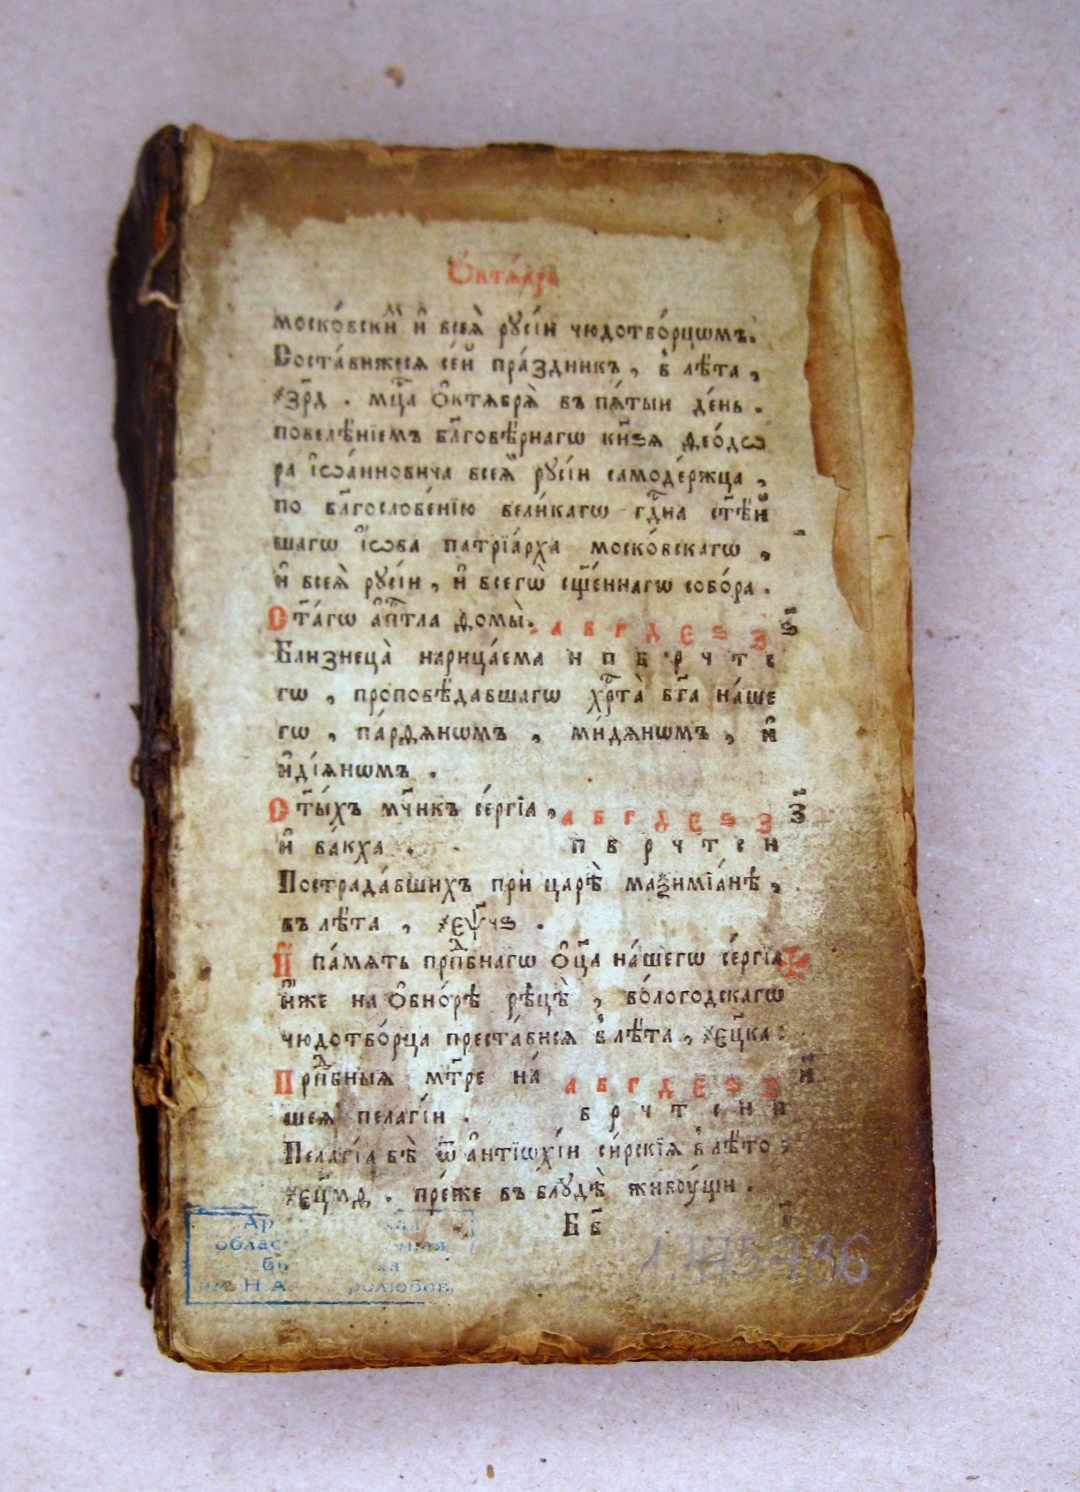 Ѻктѧ́брь
моско́вски^м и҆ всеѧ̀ рꙋсі́и чюдотво́рцѡмъ.
Соста́вижесѧ се́й пра́здникъ, в лѣ́та,
҂зр҃д. мц҃а ѻ҆ктѧбрѧ̀ въ пѧ́тыи де́нь.
повелѣ́нїемъ бл҃говѣ́рнагѡ кн҃зѧ ѳео́дѡ
ра і҆ѡа́нновича всеѧ̀ рꙋсі́и самоде́ржца,
по бл҃гослове́нїю вели́кагѡ гд҃на ст҃ѣ́й
шагѡ і҆́ѡва патрїа́рха моско́вскагѡ,
и҆ всеѧ̀ рꙋсі́и, и҆ всегѡ̀ сщ҃е́ннагѡ собо́ра.
Ст҃а́гѡ а҆пⷭ҇тла ѳомы̀. а в г д є ѕ з ѕ҃
Близнеца̀ нарица́ема н п в р ч т е
гѡ, проповѣ́давшагѡ хрⷭ҇та̀ бг҃а на́ше
гѡ, па́рѳѧнѡмъ, ми́дѧнѡмъ, и҆
и҆ді́ѧнѡмъ.
Ст҃ы́хъ мч҃нкъ се́ргїа, а в г д є ѕ з з҃
и҆ ва́кха. п в р ч т е н
Пострада́вшихъ при царѣ̀ маѯимїа́нѣ,
въ лѣ́та, ҂єѱ҃чѕ.
И҆ па́мѧть прⷣпбнагѡ ѻ҆ц҃а на́шегѡ се́ргїа
и҆́же на ѻ҆бно́рѣ рѣцѣ̀, во́логодскагѡ
чюдотво́рца преста́висѧ в лѣ́та, ҂єц҃ка:
Прⷣпбныѧ мт҃ре на́ а в г д є ѕ з и҃
шеѧ̀ пелагі́и. в р ч т е н п
Пелагі́а бѣ̀ ѿ а҆нтїѡхі́и си́рскїѧ в лѣ́то
҂єц҃мд. пре́же въ блꙋдѣ̀ живꙋ́щи.
Б в҃
Ар
облас
би
им. Н.А. ролюбов
1775786